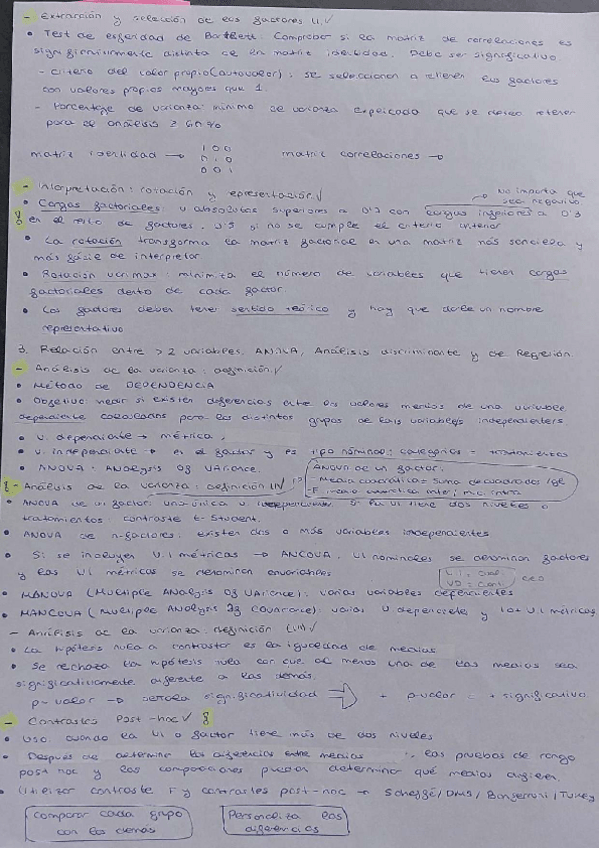 - Extracción y selección de los factores II √
• Test de esfericidad de Bartlett. Comprobar si la matriz de correlaciones es
significativamente distinta de la matriz identidad. Debe ser significativo.
- Criterio del valor propio (autovalor): se seleccionan a retienen los factores
con valores propios mayores que 1.
- Porcentaje de varianza: mínimo de varianza explicada que se deseo retener
para el análisis ≥ 60%
1 0 0
matriz identidad → 0 1 0 matriz correlaciones →
0 0 1
- Interpretación: rotación y representación √
→ No importa que sea negativo
• Cargas factoriales: v absolutos superiores a 0'5 con cargas inferiores a 0'5
en el resto de factores. si no se cumple el criterio anterior
• La rotación transforma la matriz factorial en una matriz más sencilla y
más fácil de interpretar
• Rotación varimax: minimiza el número de variables que tienen cargas
factoriales dentro de cada factor.
• Los factores deben tener sentido teórico y hay que darle un nombre
representativo
3. Relación entre > 2 variables. ANOVA, Análisis discriminante y de Regresión.
- Análisis de la varianza: definición √
• Método de DEPENDENCIA
• Objetivo: medir si existen diferencias entre los valores medios de una variable
dependiente calculados para los distintos grupos de las variables independientes
• V. dependiente → métrica,
• V. independiente → es el factor y es tipo nominal: categorías = tratamientos
• ANOVA: ANalysis Of VAriance.
ANOVA de un factor:
- Media cuadrática = Suma de cuadrados / gl
- F: media cuadrática inter / m.c. intra
- Análisis de la varianza: definición II √
• ANOVA de un factor: una única v. independiente
tratamientos: contraste t-Student.
• ANOVA de n-factores: existen dos o más variables independientes
• Si se incluyen V.I métricas → ANCOVA. VI nominales se denominan factores
y las VI métricas se denominan
• MANOVA (Multiple ANalysis Of VAriance): varias variables dependientes
• MANCOVA (Multiple ANalysis Of COVAriance): varias V dependientes y 1 o + V.I métricas
- Análisis de la varianza: definición (III) √
• La hipótesis nula a contrastar es la igualdad de medias.
• Se rechaza la hipótesis nula con que al menos una de las medias sea
significativamente diferente a las demás.
p-valor → señala significatividad + p-valor = + significativo
- Contrastes Post-hoc √
• Uso: cuando la VI o factor tiene más de dos niveles
• Después de determinar las diferencias entre medias las pruebas de rango
post hoc y las comparaciones pueden determinar qué medias difieren
• Utilizar contraste F y contrastes post-hoc → Scheffé / DMS / Bonferroni / Tukey
Comparar cada grupo
con los demás
Personaliza las
diferencias